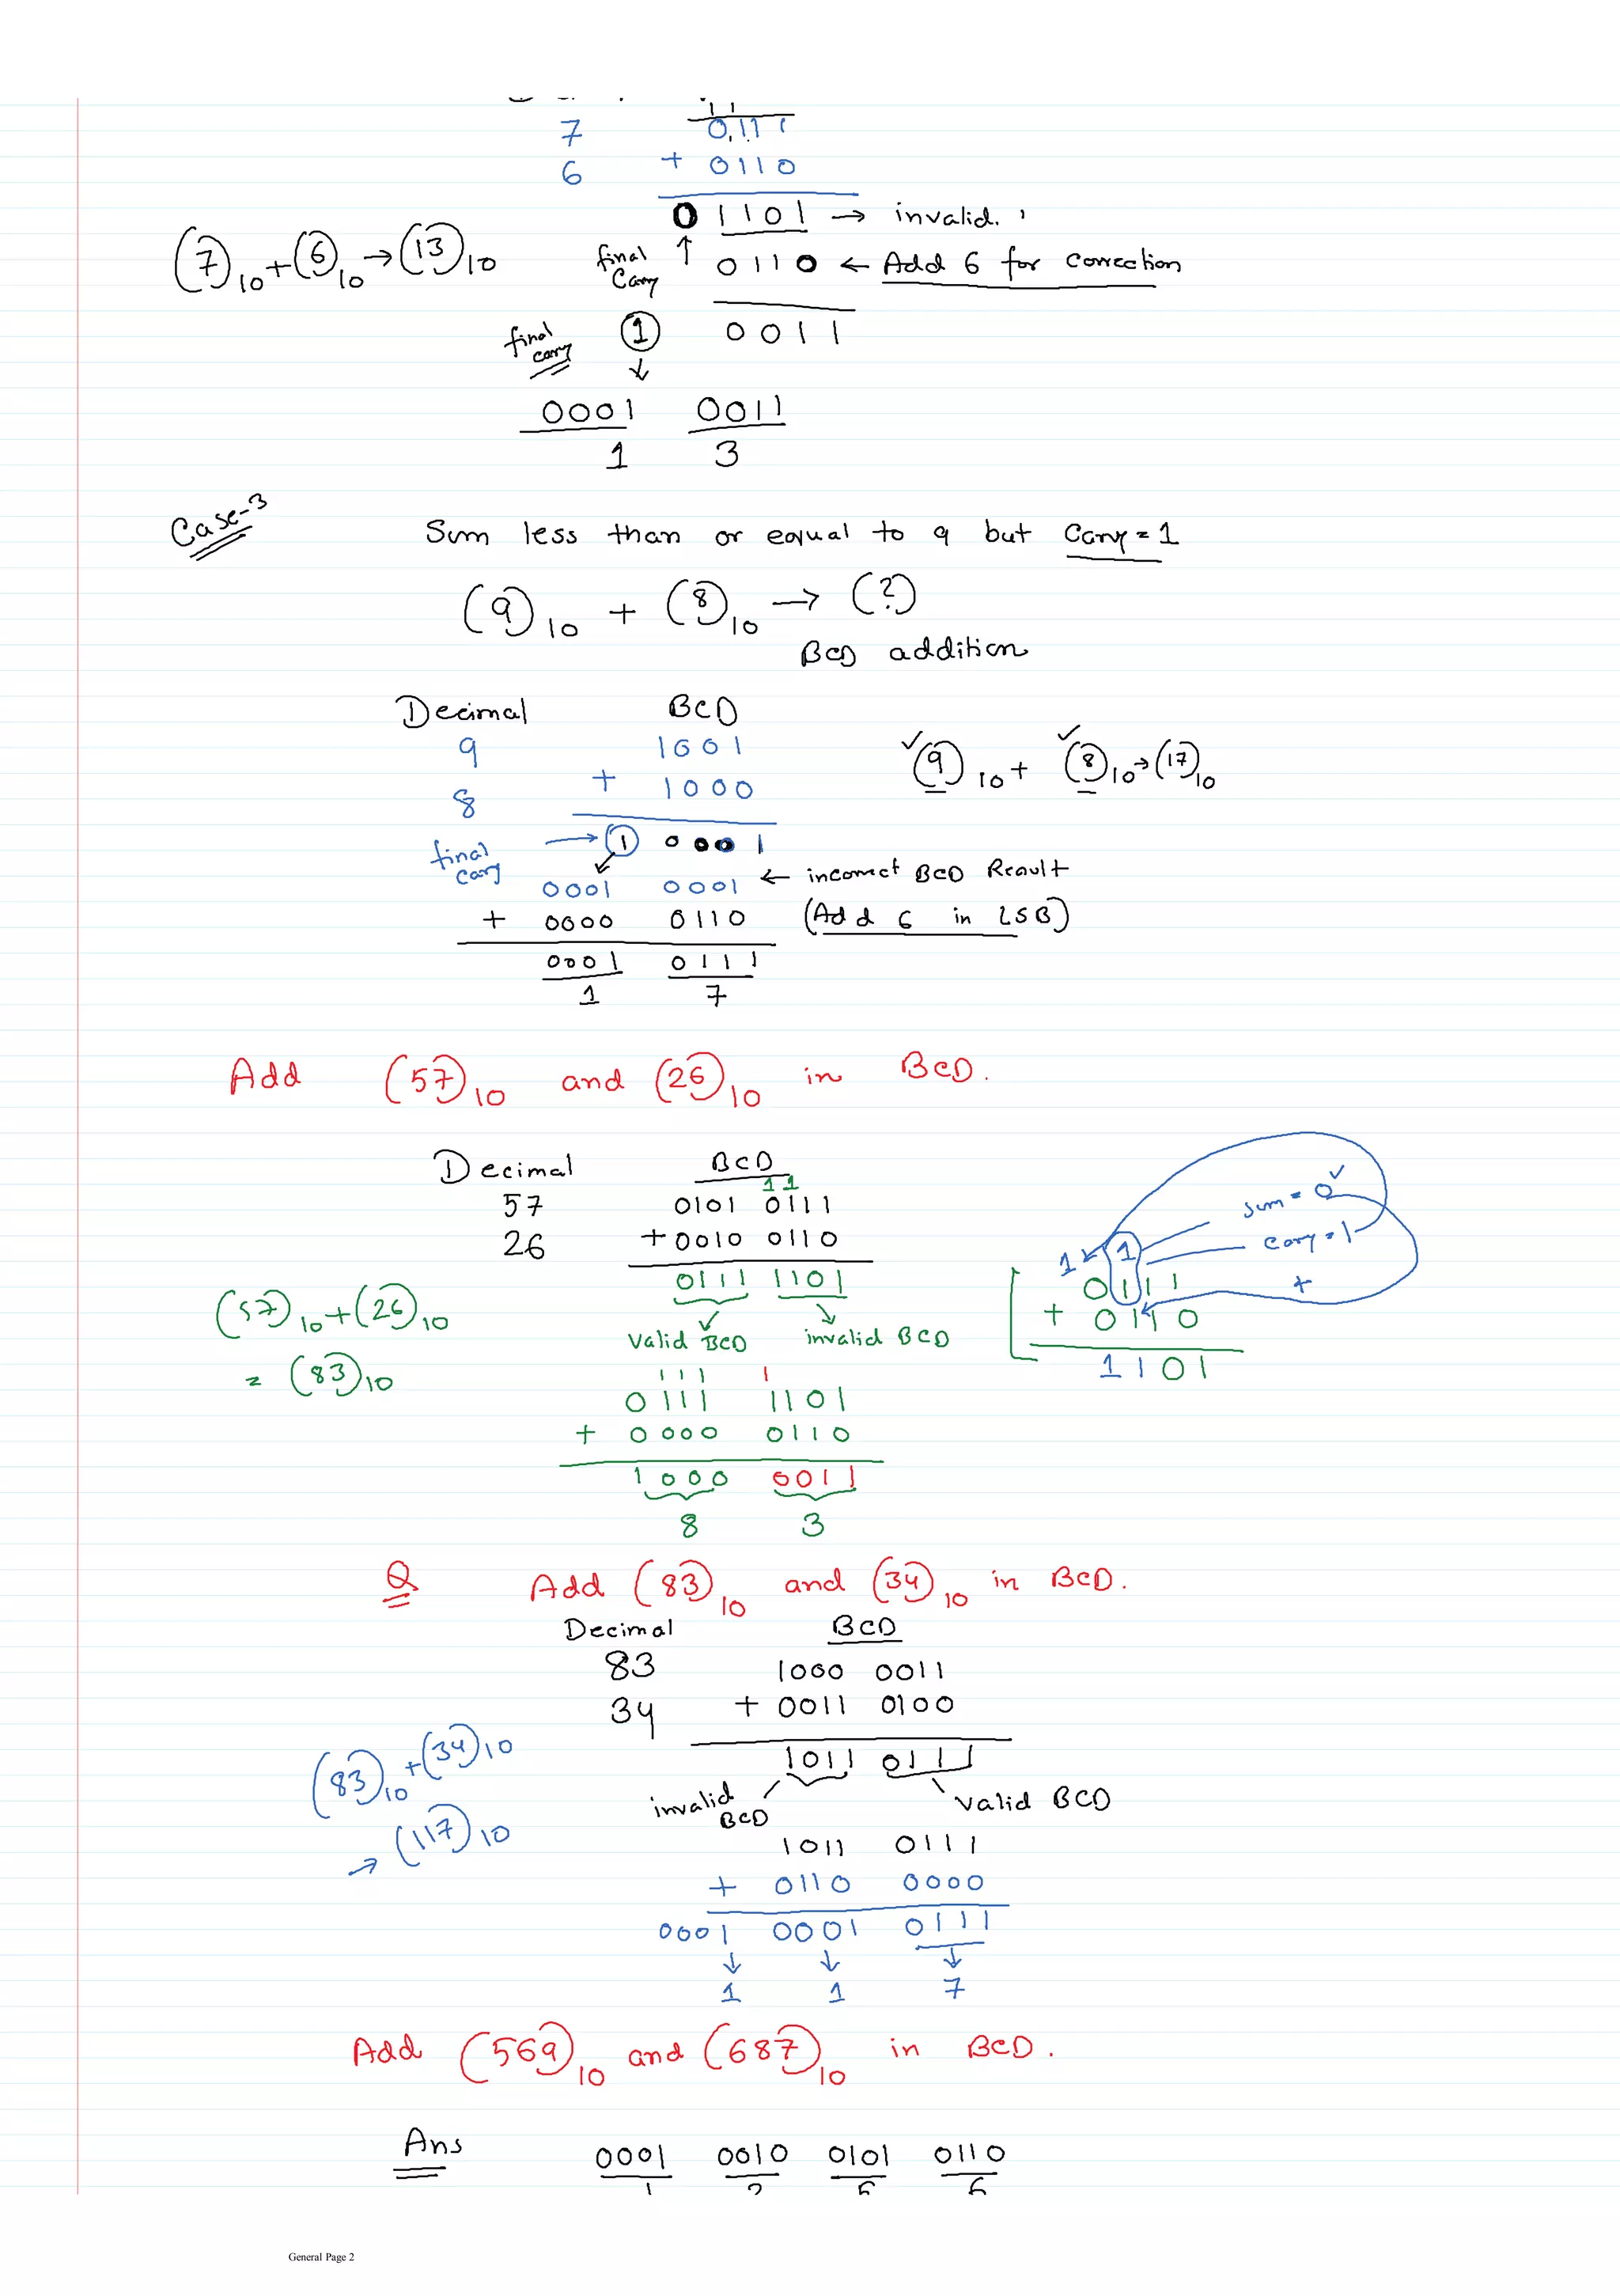 7 0111
6 + 0110
0 1101 → invalid.
(7)10 + (6)10 → (13)10
final carry ↑ 0110 ← Add 6 for correction
final carry 1 0011
0001 0011
1 3
Case-3
Sum less than or equal to 9 but Carry = 1
(9)10 + (8)10 → (?)
BCD addition
Decimal BCD
9 1001
+ 1000
8
(9)10 + (8)10 → (17)10
final carry → 1 0001
0001 0001 ← incorrect BCD Result
+ 0000 0110 (Add 6 in LSB)
0001 0111
1 7
Add (57)10 and (26)10 in BCD.
Decimal BCD
1 1
57 0101 0111
26 + 0010 0110
0111 1101
Valid BCD invalid BCD
(57)10 + (26)10
= (83)10
sum = 0
carry = 1
+
1 1
0111
+ 0110
1101
1 1 1 1
0111 1101
+ 0000 0110
1000 0011
8 3
Q Add (83)10 and (34)10 in BCD.
Decimal BCD
83 1000 0011
34 + 0011 0100
1011 0111
invalid BCD Valid BCD
(83)10 + (34)10
→ (117)10
1011 0111
+ 0110 0000
0001 0001 0111
↓ ↓ ↓
1 1 7
Add (569)10 and (687)10 in BCD.
Ans 0001 0010 0101 0110
General Page 2